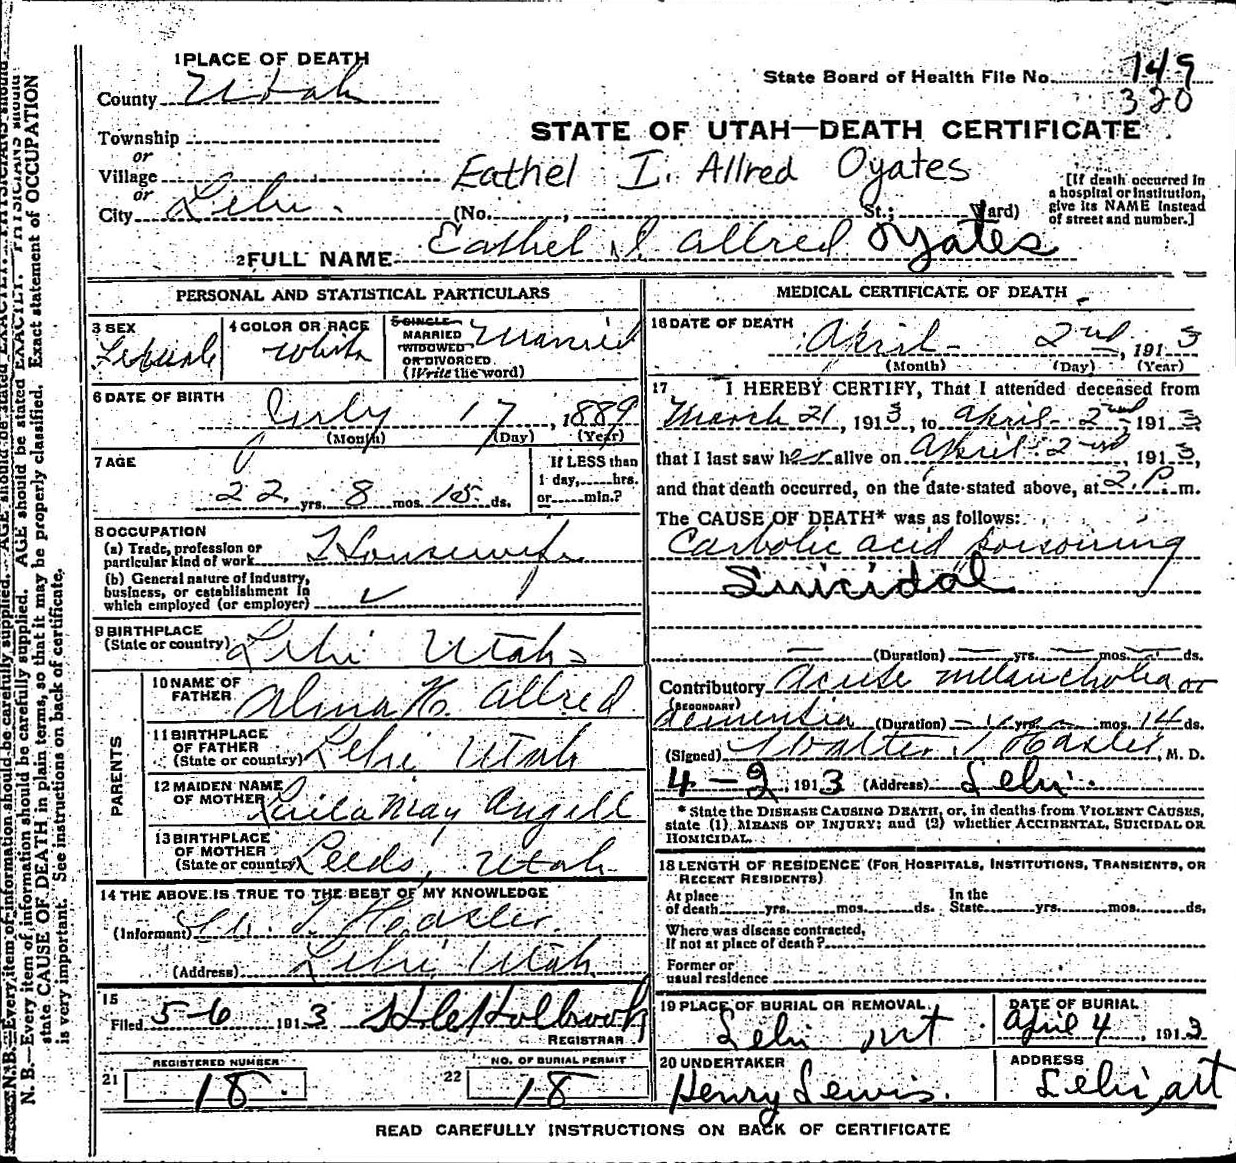 1 PLACE OF DEATH
County Utah
State Board of Health File No. 149
320
Township
or
Village
or
City Lehi.
STATE OF UTAH—DEATH CERTIFICATE
Eathel I. Allred Oyates
[If death occurred in
a hospital or institution,
give its NAME instead
of street and number.]
(No. , St.; Ward)
2 FULL NAME Eathel I. Allred Oyates
PERSONAL AND STATISTICAL PARTICULARS
3 SEX
Female
4 COLOR OR RACE
White
5 SINGLE
MARRIED
WIDOWED
OR DIVORCED
(Write the word)
Married
6 DATE OF BIRTH
July 17, 1889
(Month) (Day) (Year)
7 AGE
22 yrs. 8 mos. 15 ds.
If LESS than
1 day, hrs.
or min.?
8 OCCUPATION
(a) Trade, profession or
particular kind of work Housewife
(b) General nature of industry,
business, or establishment in
which employed (or employer) ✓
9 BIRTHPLACE
(State or country) Lehi Utah
PARENTS
10 NAME OF
FATHER Alma H. Allred
11 BIRTHPLACE
OF FATHER
(State or country) Lehi Utah
12 MAIDEN NAME
OF MOTHER May Angell
13 BIRTHPLACE
OF MOTHER
(State or country) Leeds, Utah
14 THE ABOVE IS TRUE TO THE BEST OF MY KNOWLEDGE
(Informant) W. J. Hasler
(Address) Lehi, Utah
15
Filed 5-6 1913 Holbrook
REGISTRAR
REGISTERED NUMBER
21 18
NO. OF BURIAL PERMIT
22 18
MEDICAL CERTIFICATE OF DEATH
16 DATE OF DEATH
April 2nd, 1913
(Month) (Day) (Year)
17 I HEREBY CERTIFY, That I attended deceased from
March 21, 1913, to April 2nd, 1913
that I last saw her alive on April 2nd, 1913,
and that death occurred, on the date stated above, at 2 P. m.
The CAUSE OF DEATH* was as follows:
Carbolic acid poisoning
Suicidal
(Duration) yrs. mos. ds.
Contributory Acute melancholia or
(SECONDARY)
dementia (Duration) yrs. mos. 14 ds.
(Signed) Walter J Hasler, M. D.
4-2, 1913 (Address) Lehi.
* State the DISEASE CAUSING DEATH, or, in deaths from VIOLENT CAUSES,
state (1) MEANS OF INJURY; and (2) whether ACCIDENTAL, SUICIDAL OR
HOMICIDAL.
18 LENGTH OF RESIDENCE (FOR HOSPITALS, INSTITUTIONS, TRANSIENTS, OR
RECENT RESIDENTS)
At place
of death yrs. mos. ds.
In the
State yrs. mos. ds.
Where was disease contracted,
If not at place of death?
Former or
usual residence
19 PLACE OF BURIAL OR REMOVAL
Lehi Ut
DATE OF BURIAL
April 4, 1913
20 UNDERTAKER
Henry Lewis.
ADDRESS
Lehi, Ut
READ CAREFULLY INSTRUCTIONS ON BACK OF CERTIFICATE
N. B.—Every item of information should be carefully supplied. AGE should be stated EXACTLY. PHYSICIANS should
state CAUSE OF DEATH in plain terms, so that it may be properly classified. Exact statement of OCCUPATION
is very important. See instructions on back of certificate.